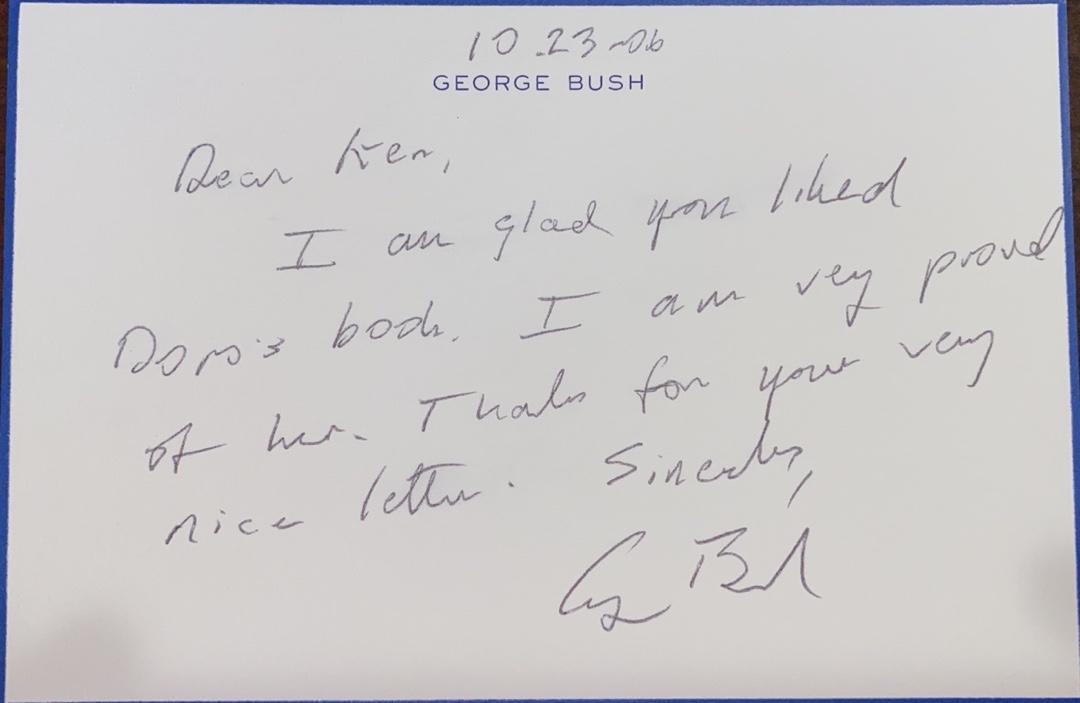 10.23-06
GEORGE BUSH
Dear Ken,
I am glad you liked
Doro's book. I am very proud
of her. Thanks for your very
nice letter. Sincerely,
George Bush